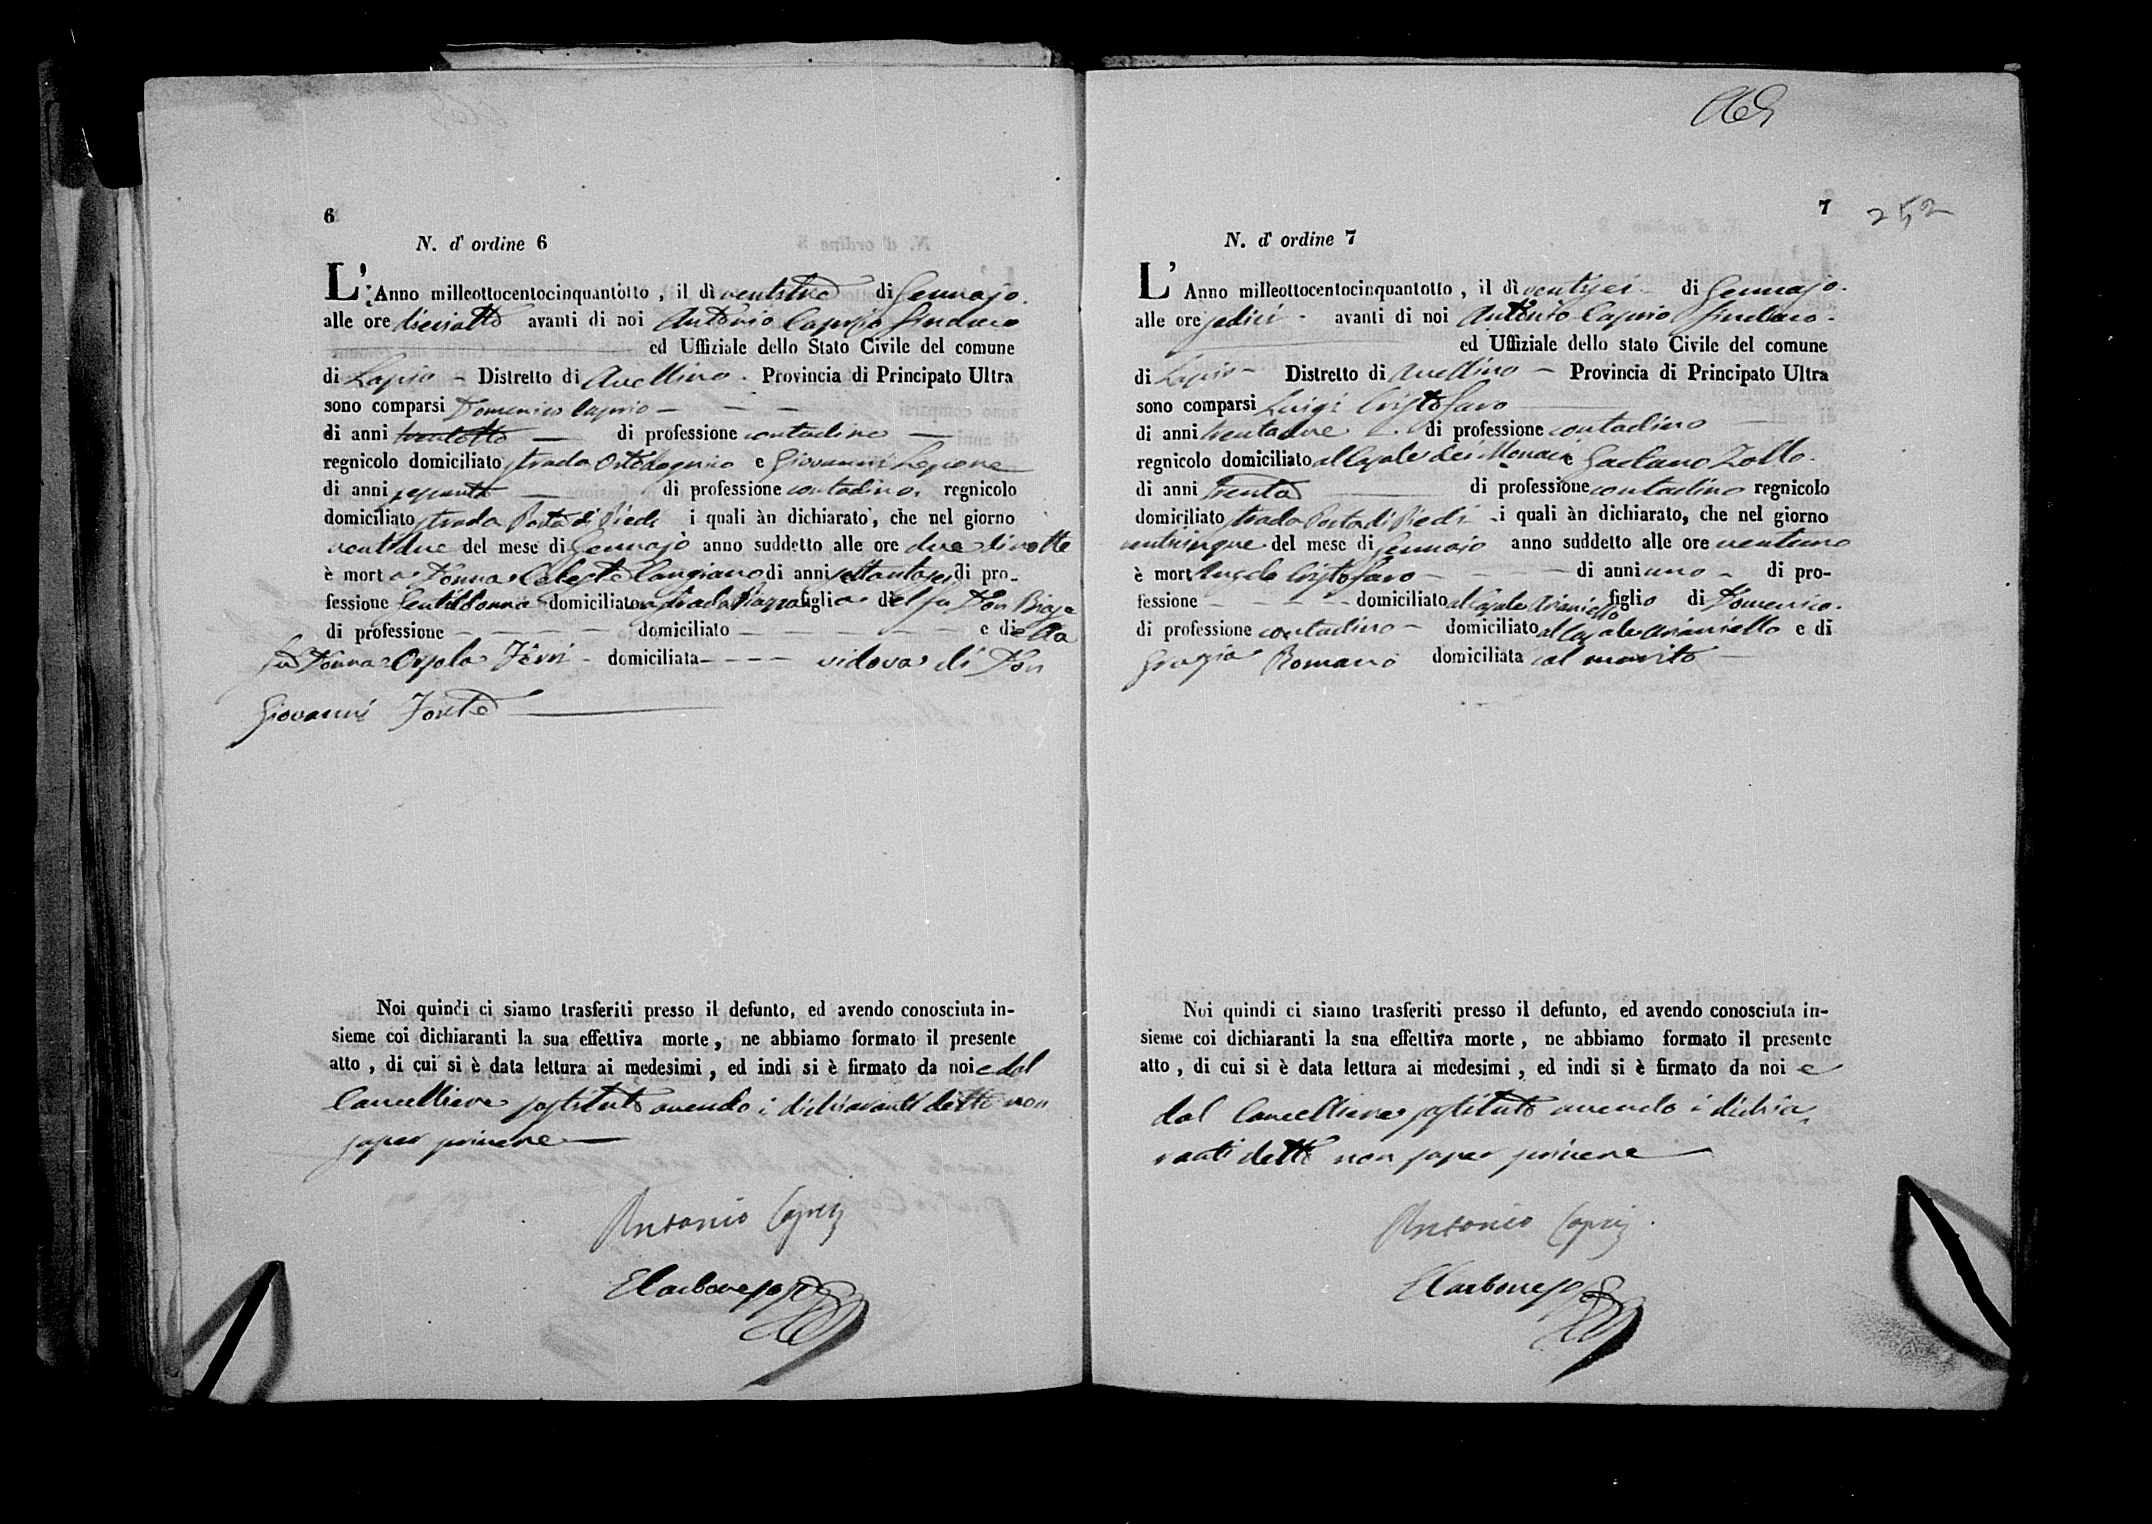 6
N. d' ordine 6
L' Anno milleottocentocinquantotto, il dì ventitre di Gennajo.
alle ore dieciotto avanti di noi Antonio Caprio Sindaco
ed Uffiziale dello Stato Civile del comune
di Lapio - Distretto di Avellino. Provincia di Principato Ultra
sono comparsi Domenico Caprio
di anni trentotto di professione contadino
regnicolo domiciliato strada e Giovanni Lepore
di anni sessanta di professione contadino. regnicolo
domiciliato strada Porta di Piedi i quali àn dichiarato, che nel giorno
ventidue del mese di Gennajo anno suddetto alle ore due di notte
è morta Donna Celeste Cangiano di anni settantasei di pro-
fessione Gentildonna domiciliata strada Piazza figlia del fu Don Biase
di professione - - - domiciliato - - - e della
fu Donna Orsola domiciliata - - - vidova di Don
Giovanni Forte
Noi quindi ci siamo trasferiti presso il defunto, ed avendo conosciuta in-
sieme coi dichiaranti la sua effettiva morte, ne abbiamo formato il presente
atto, di cui si è data lettura ai medesimi, ed indi si è firmato da noi e dal
Cancelliere sostituto avendo i dichiaranti detto non
saper scrivere
Antonio Caprio
E Carbone sost
7
252
N. d' ordine 7
L' Anno milleottocentocinquantotto, il dì ventisei di Gennajo.
alle ore sedici avanti di noi Antonio Caprio Sindaco
ed Uffiziale dello stato Civile del comune
di Lapio - Distretto di Avellino - Provincia di Principato Ultra
sono comparsi Luigi Cristofaro
di anni trentadue di professione contadino
regnicolo domiciliato al Casale dei Monaci e Gaetano Zollo.
di anni trenta di professione contadino regnicolo
domiciliato strada Porta di Piedi i quali àn dichiarato, che nel giorno
venticinque del mese di Gennaio anno suddetto alle ore ventuno
è mort Angelo Cristofaro di anni uno di pro-
fessione - - - domiciliato al Casale Arianiello figlio di Domenico.
di professione contadino - domiciliato al Casale Arianiello e di
Grazia Romano domiciliata col marito
Noi quindi ci siamo trasferiti presso il defunto, ed avendo conosciuta in-
sieme coi dichiaranti la sua effettiva morte, ne abbiamo formato il presente
atto, di cui si è data lettura ai medesimi, ed indi si è firmato da noi e
dal Cancelliere sostituto avendo i dichia-
ranti detto non saper scrivere
Antonio Caprio
E Carbone sost